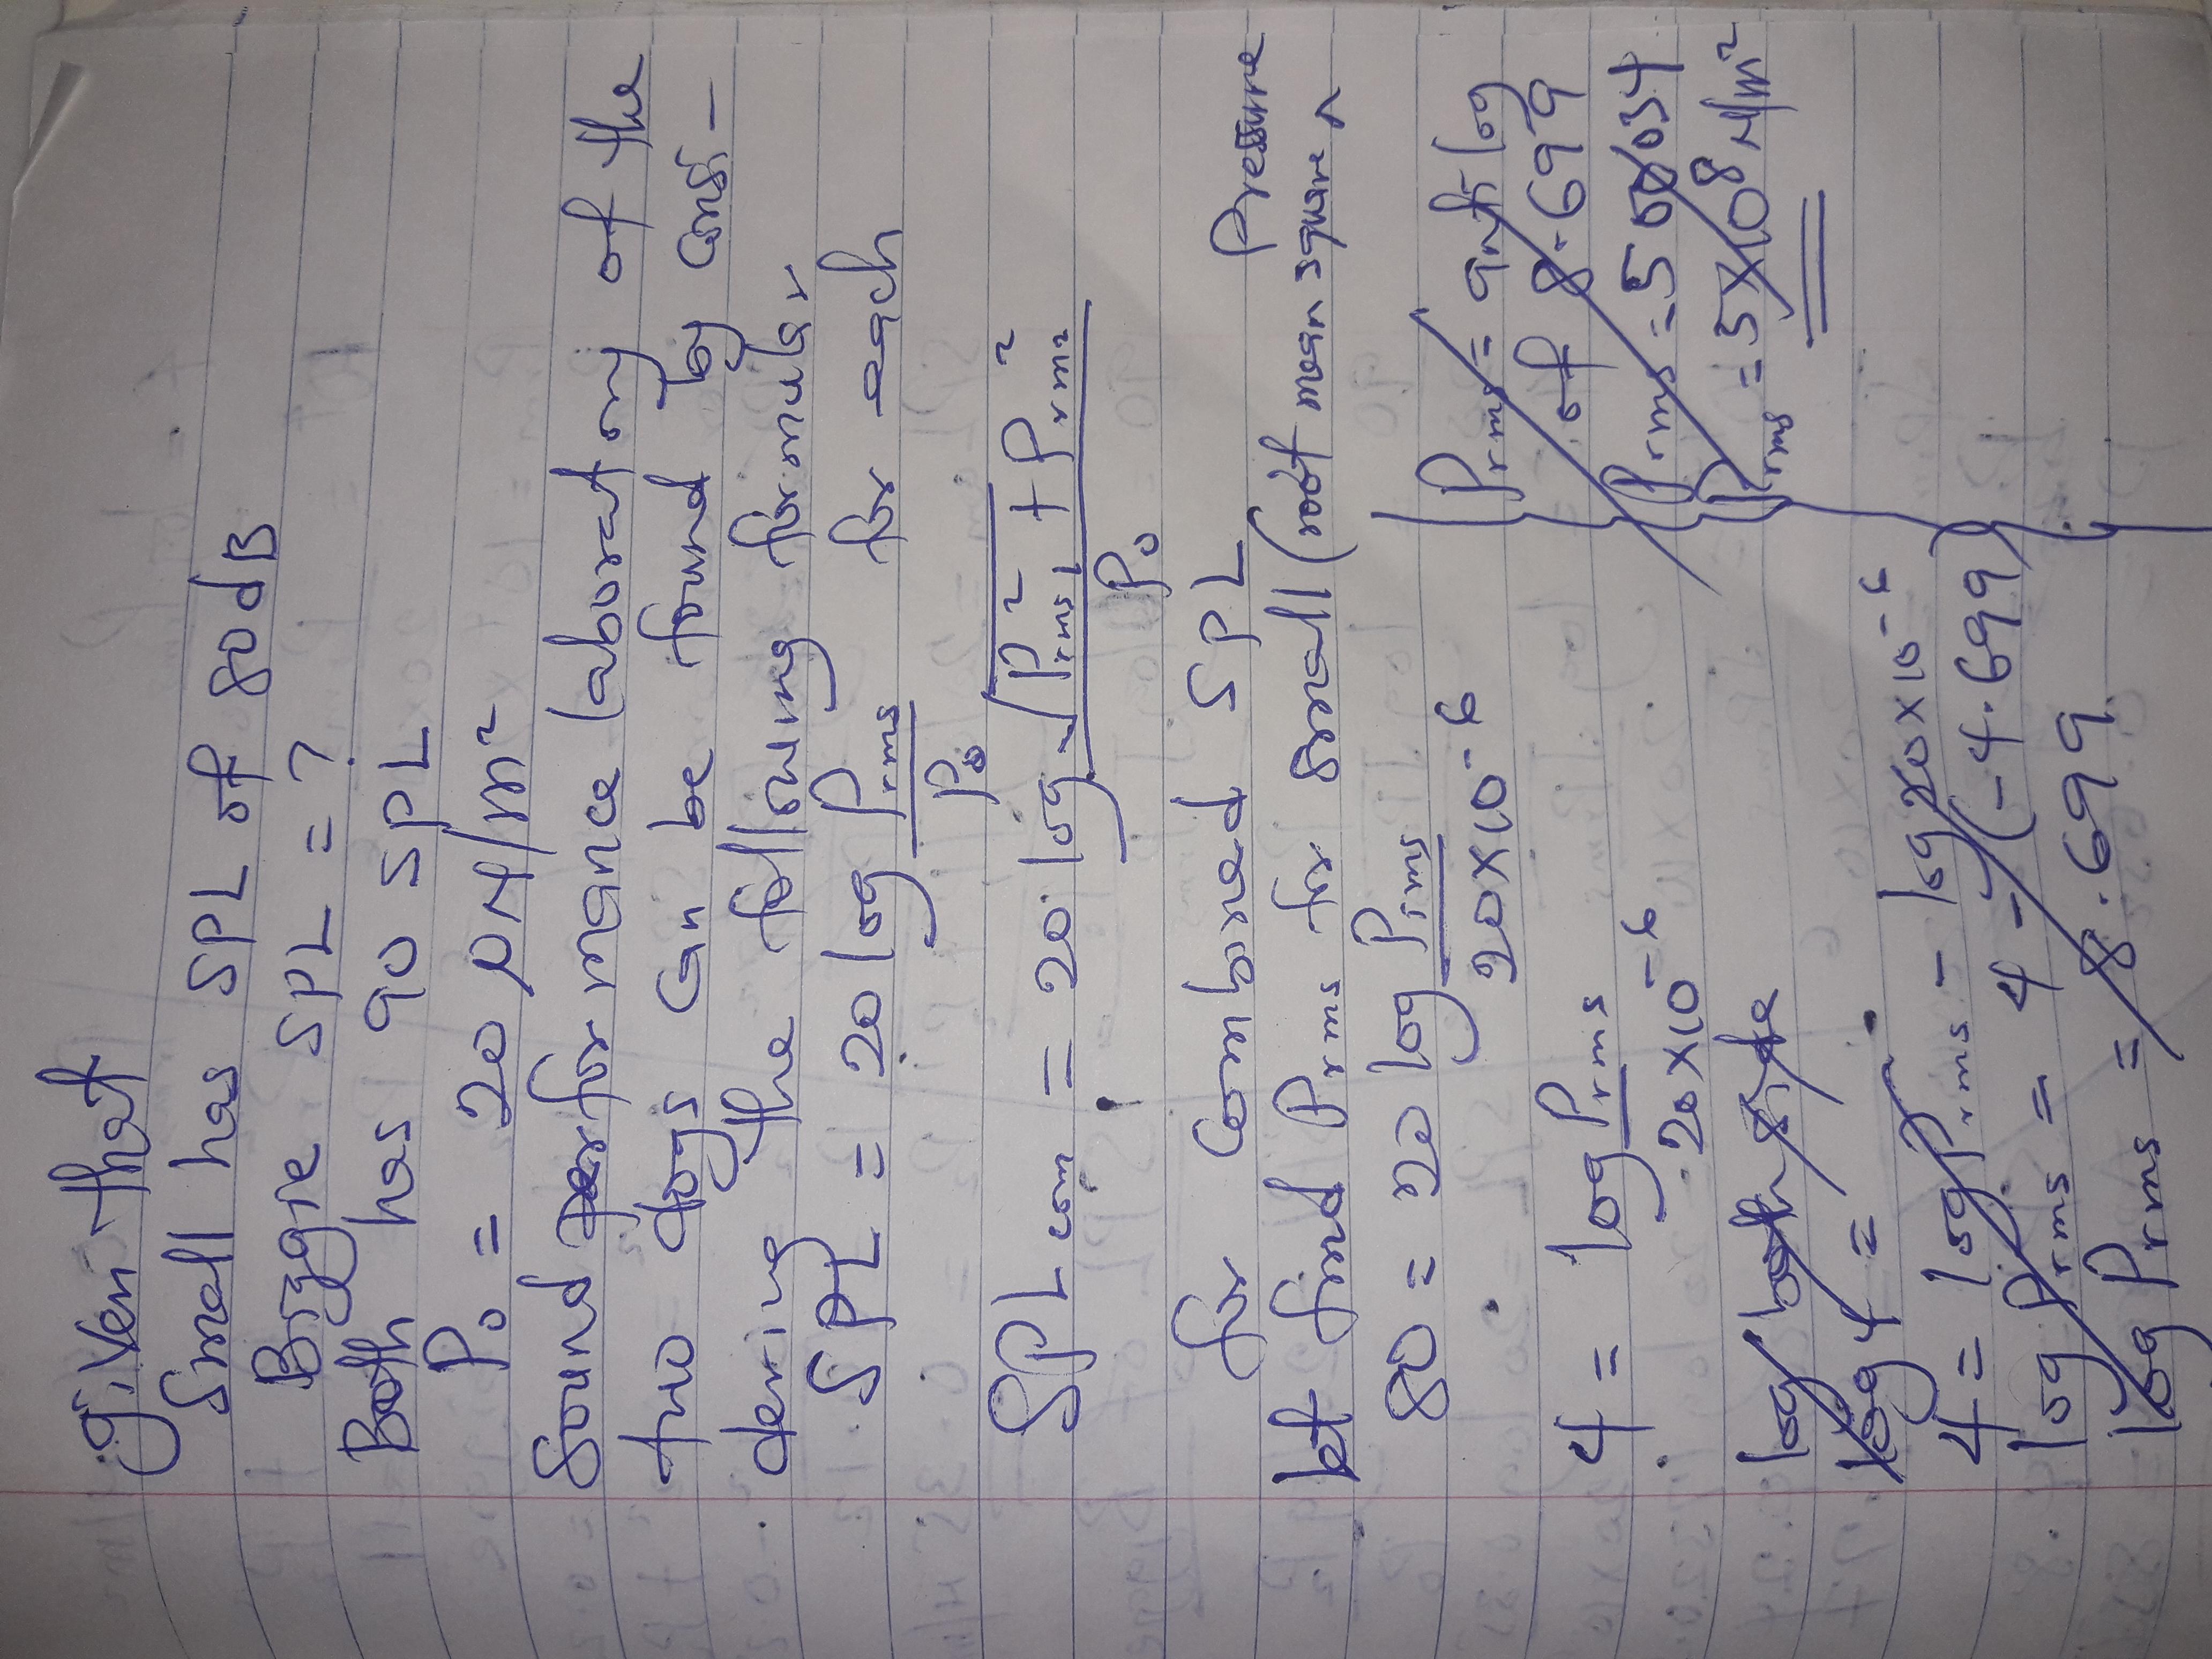 given that
Small has SPL of 80dB
Biggie SPL = ?
Both has 90 SPL
P₀ = 20 μN/m²
Sound performance laboratory of the
two dogs can be found by consi-
dering the following formular
SPL = 20 log Prms/P₀ for each
SPLcom = 20 log √(P²rms1 + P²rm2)/P₀
for combined SPL
let find Prms for small (root mean square Pressure ^
80 = 20 log Prms/20×10⁻⁶
4 = log Prms/20×10⁻⁶
log both side
log 4 =
4 = log Prms - log 20×10⁻⁶
log Prms = 4 - (-4.699)
log Prms = 8.699
Prms = anti log
of 8.699
Prms =
Prms = 5×10⁸ N/m²